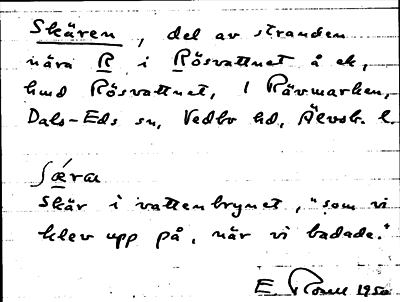 Skären, del av stranden
nära R i Rösvattnet å ek,
hmd Rösvattnet, 1 Rävmarken,
Dals-Eds sn, Vedbo hd, Älvsb. l.
ʃǽra
Skär i vattenbrynet, "som vi
klev upp på, när vi badade."
E 1950